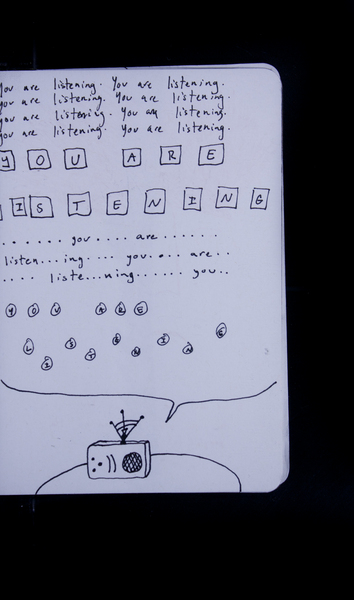 You are listening. You are listening.
you are listening. You are listening.
you are listening. You are listening.
you are listening. You are listening.
YOU ARE
LISTENING
. . . . . . you . . . . are . . . . . .
listen...ing.... you... are..
.... liste...ning...... you..
YOU ARE
LISTENING